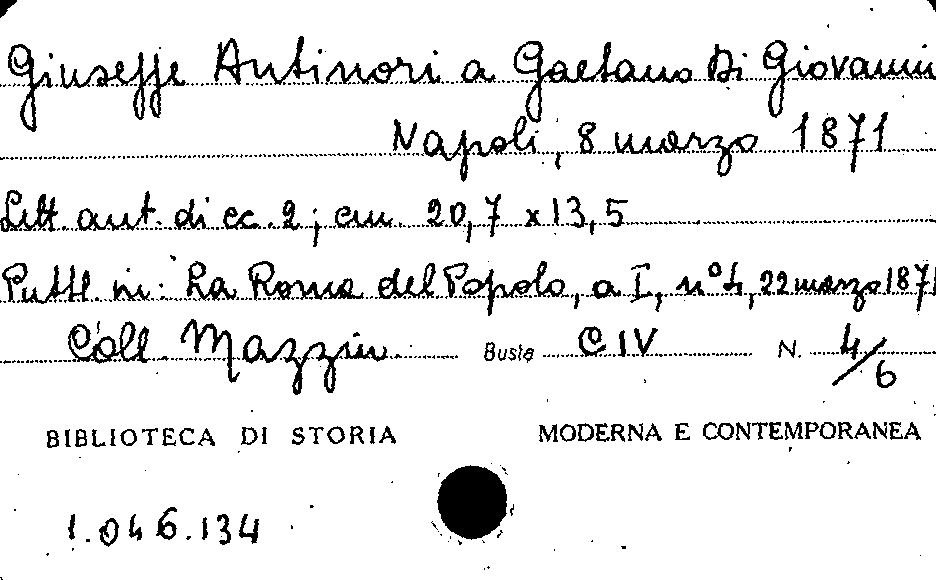 Giuseppe Antinori a Gaetano Di Giovanni
Napoli, 8 marzo 1871
Lett. aut. di cc. 2; cm. 20,7 x 13,5
Pubbl. in: La Roma del Popolo, a I, n° 4, 22 marzo 1871
Coll. Mazzin. Busta C IV N. 4/6
BIBLIOTECA DI STORIA MODERNA E CONTEMPORANEA
1.046.134